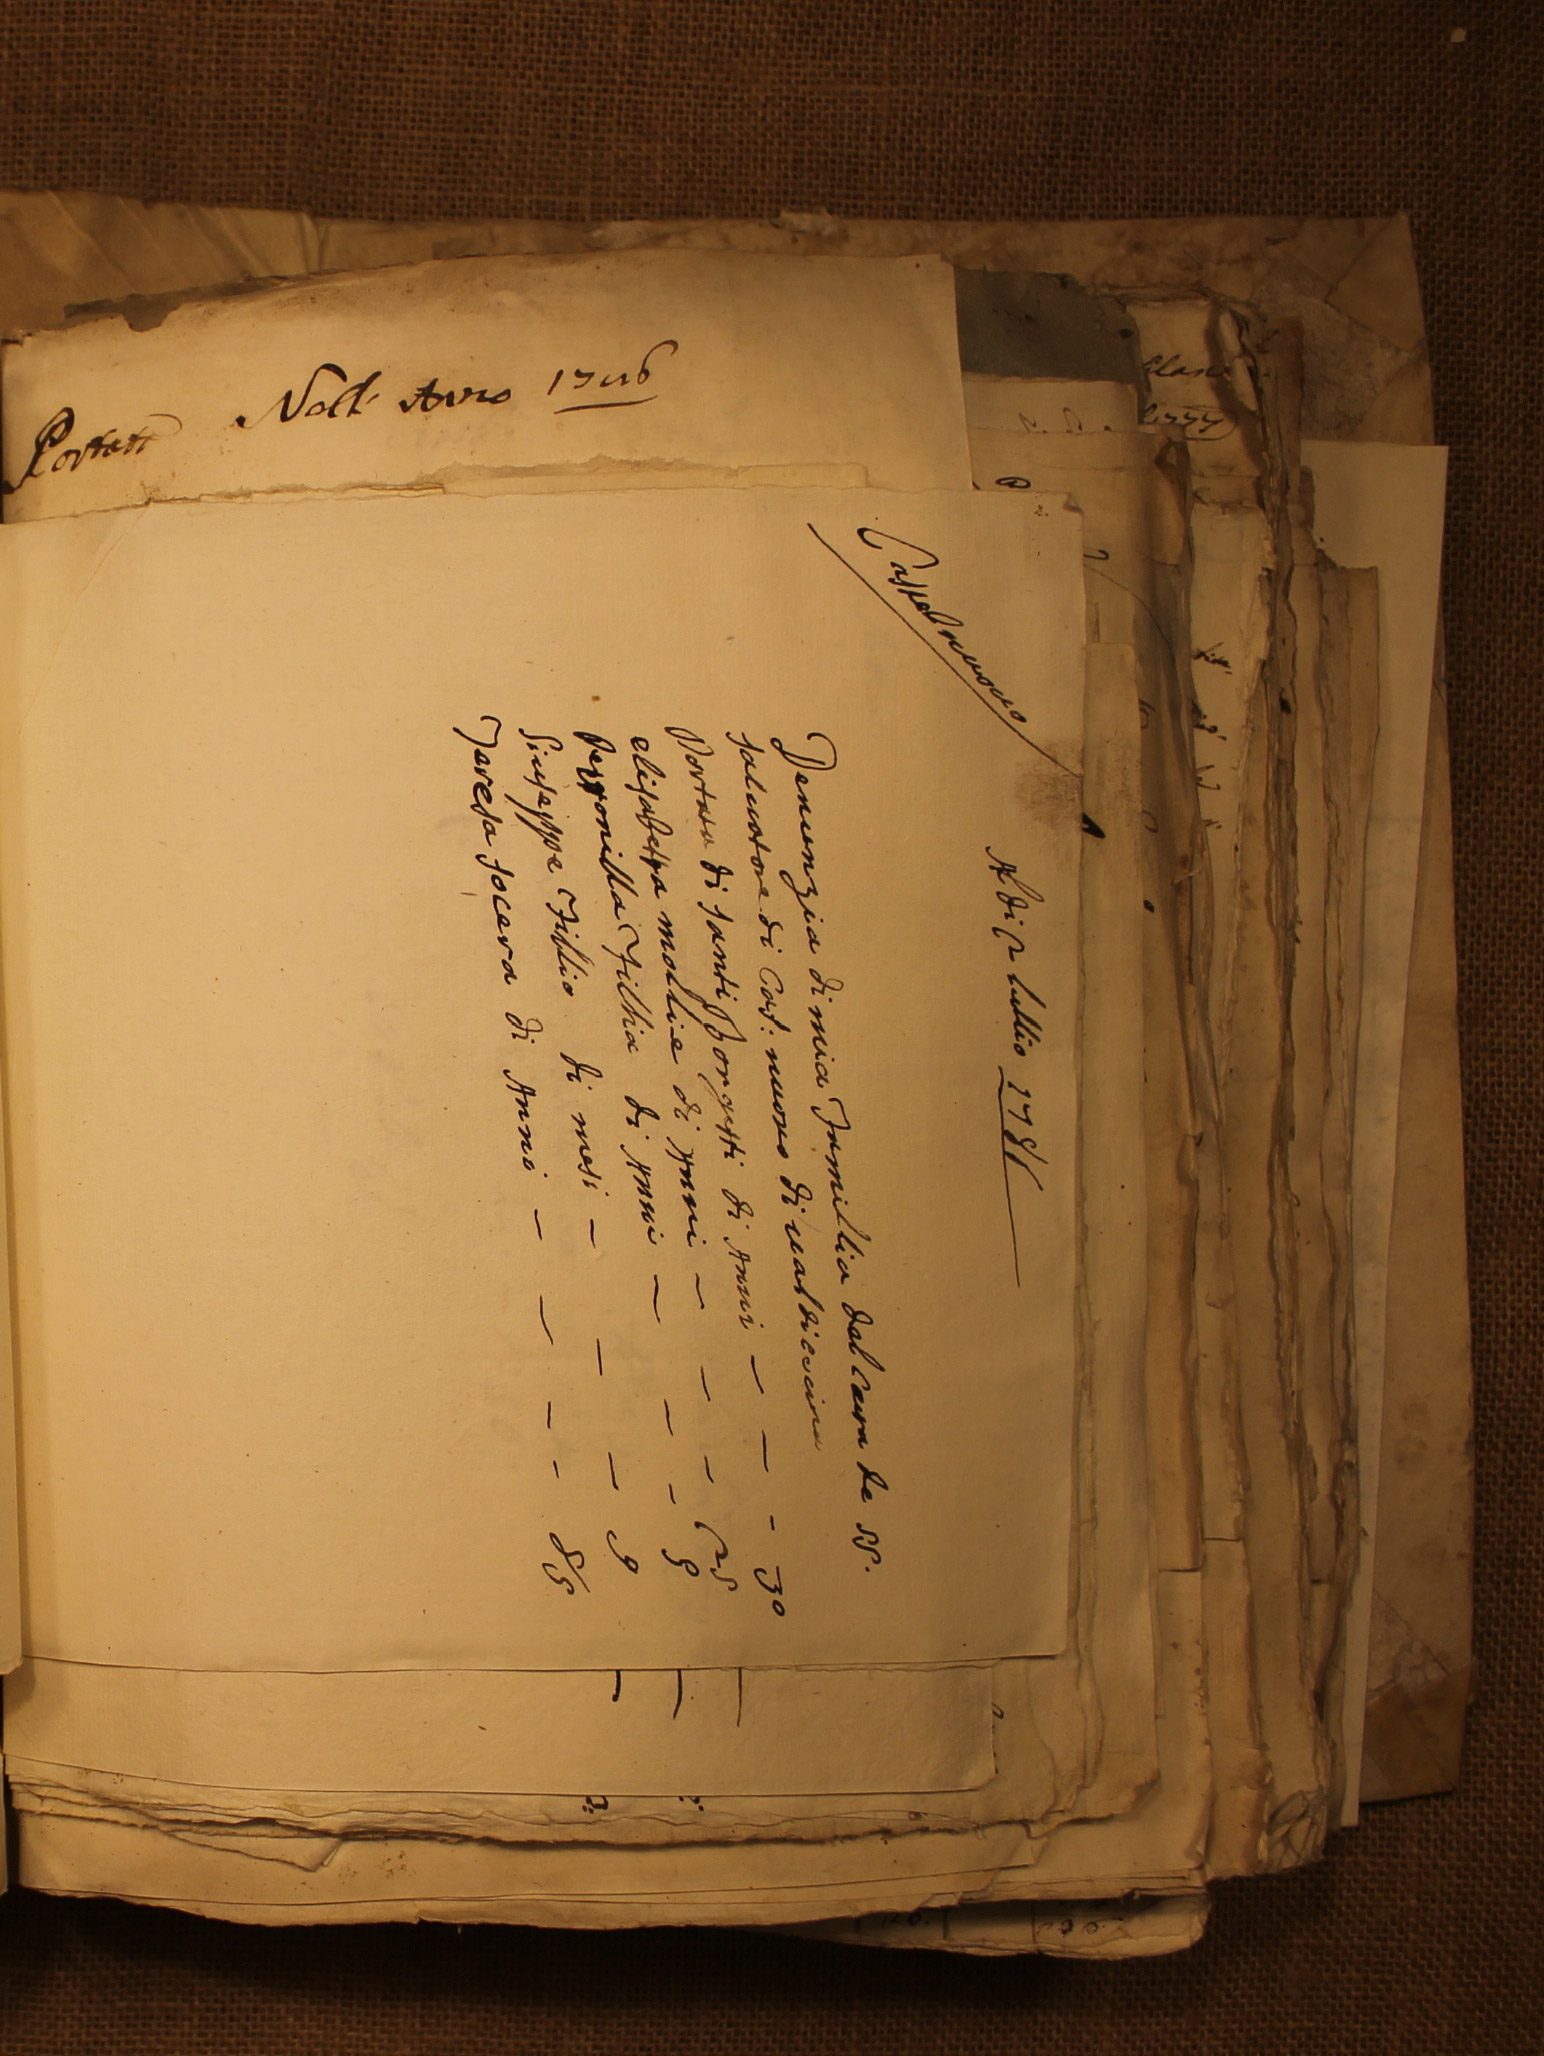 Portate Nell' Anno 1786
Castelnuovo
A di 2 lullio 1786
Denunzia di mia Famillia dal Cura de SS.
salvatore di Cast: nuovo di valdicecina
Portata di santi Borgetti di Anni — — - 30
elisabetta mollie di Anni — — — 25
Pertonilla Fillia di Anni — — - 5
Giuseppe Fillio di mesi — — — 9
Teresa socera di Anni — — - - 85